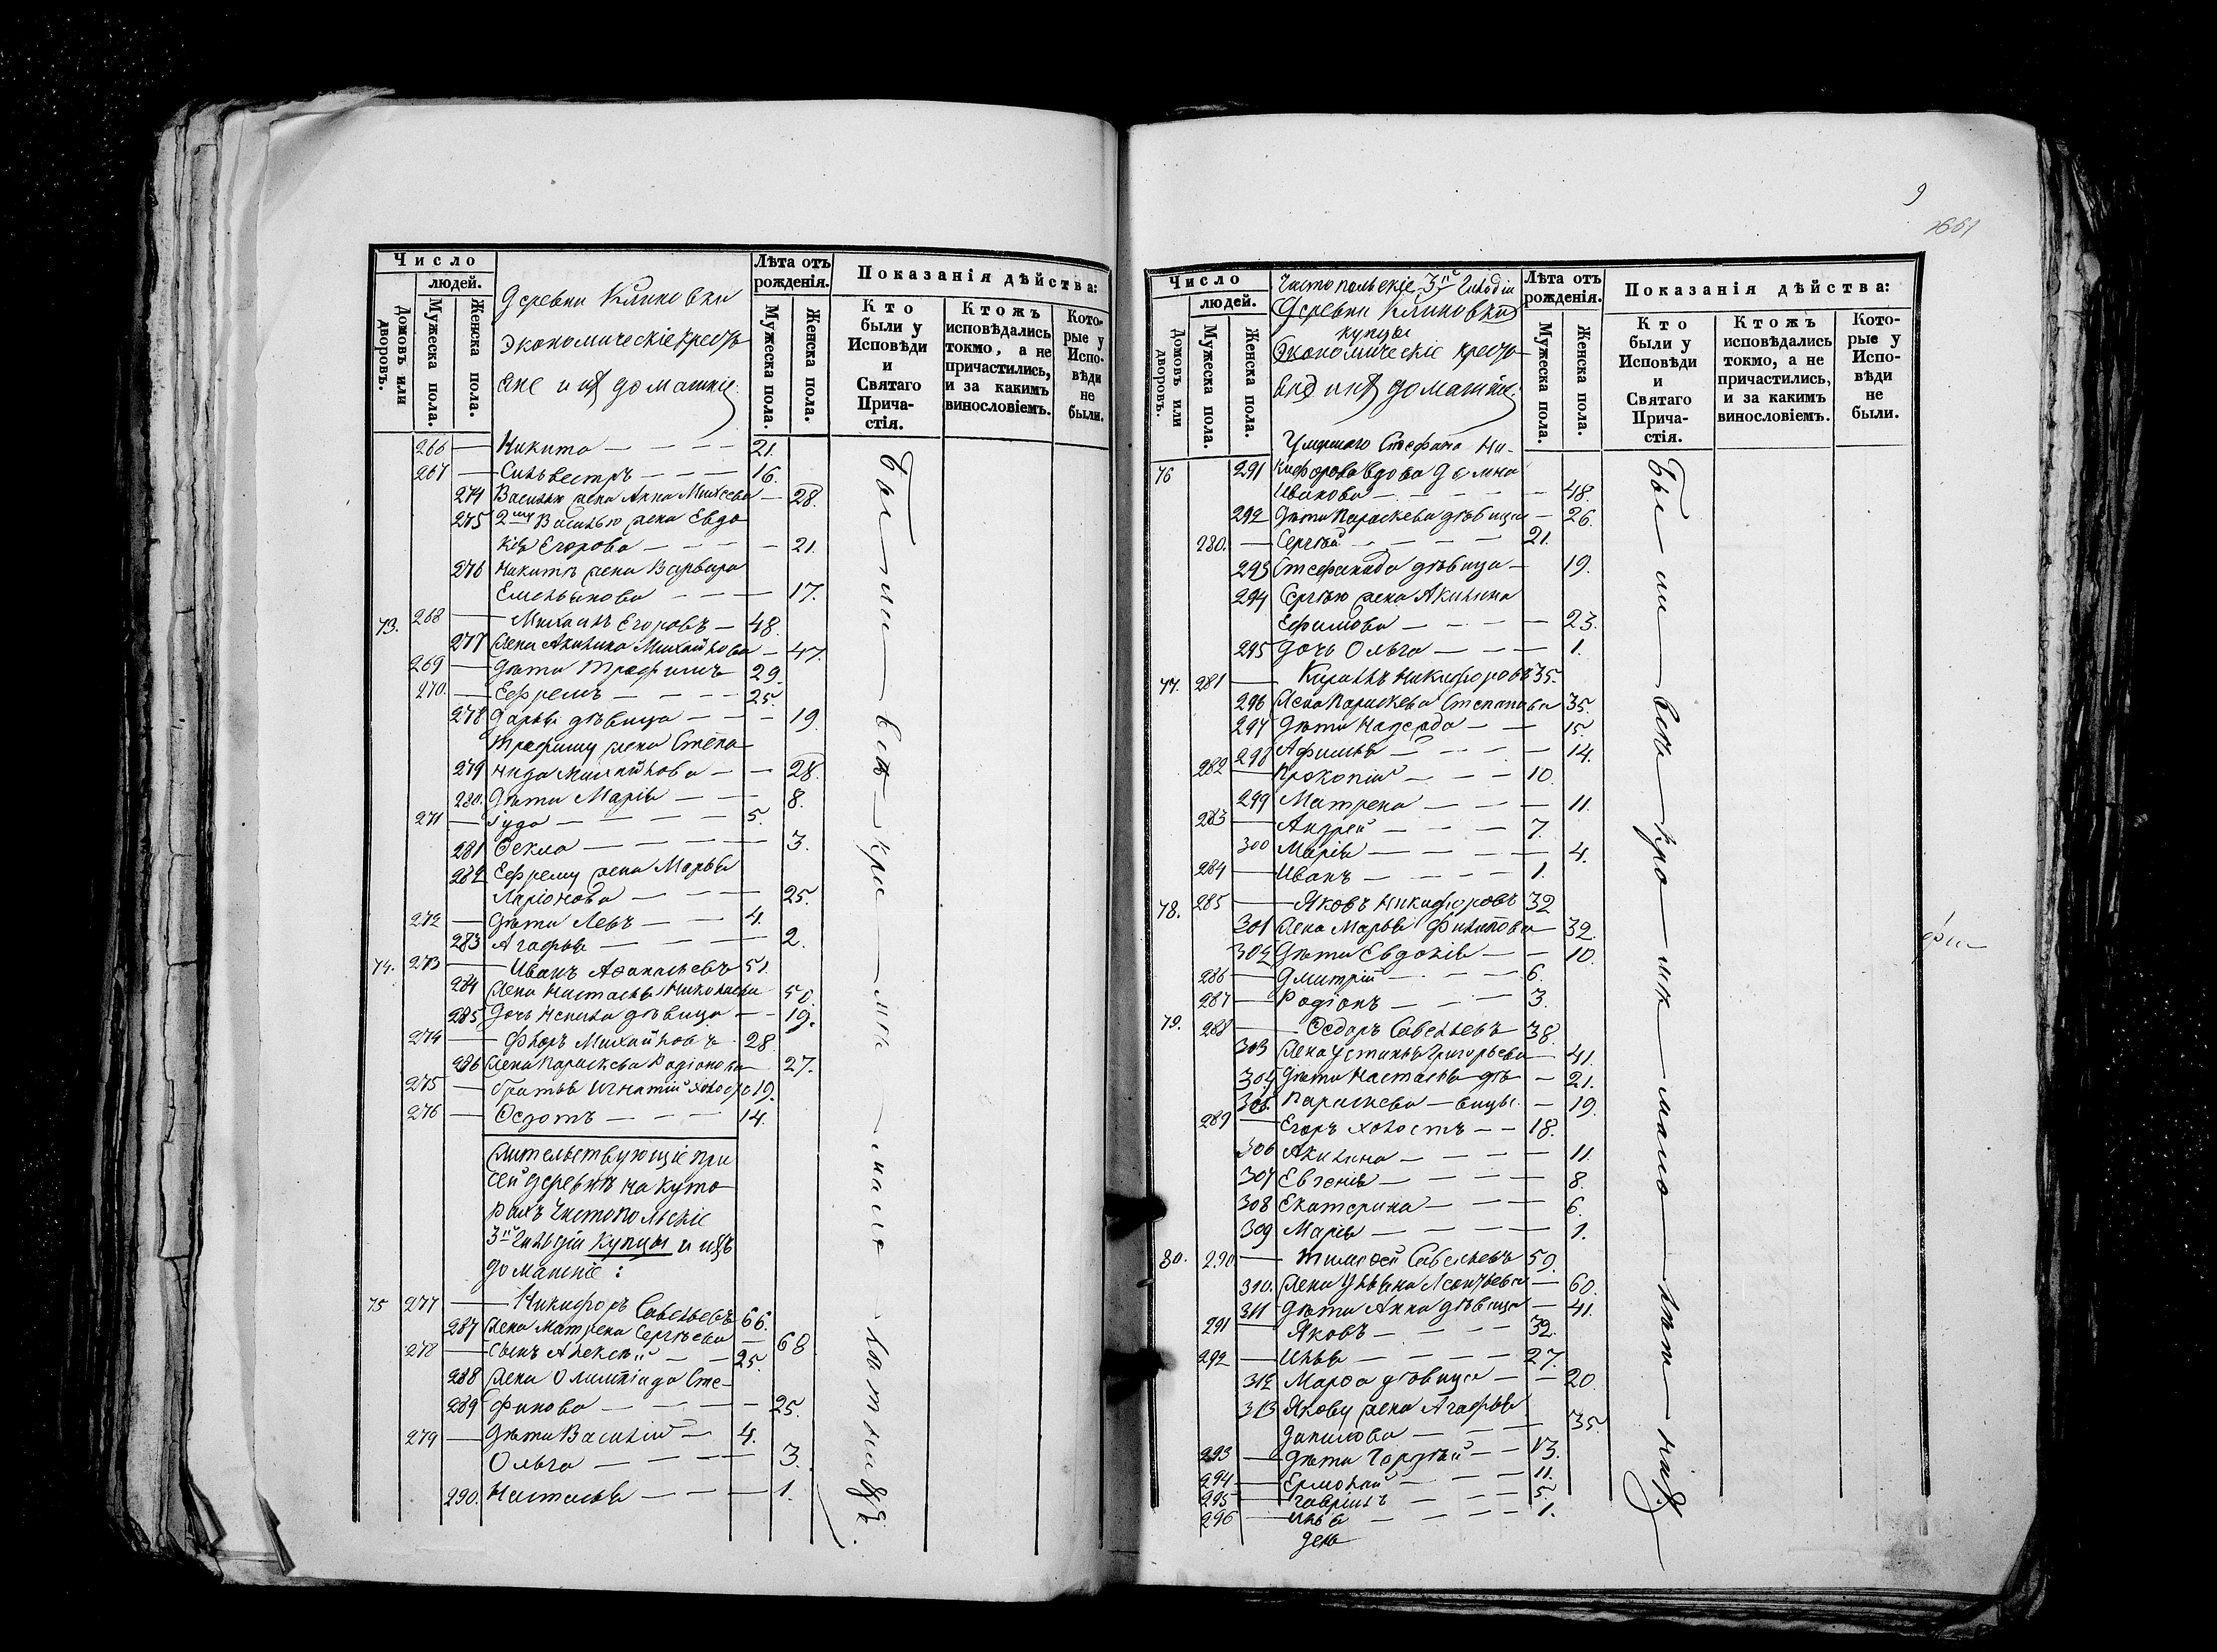 Число
людей.
Домовъ или дворовъ.
Мужеска пола.
Женска пола.
Деревни Климовки
экономическіе кресть
яне и ихъ домашніе:
Лѣта отъ рожденія.
Мужеска пола.
Женска пола.
Показанія дѣйства:
Кто были у Исповѣди и Святаго Причастія.
Ктожъ исповѣдались токмо, а не причастились, и за какимъ винословіемъ.
Которые у Исповѣди не были.
266 — Никита — — — 21.
267 — Сильвестръ — — — 16.
274 Василью жена Анна Михеева — 28.
275 2му Василью жена Евдо
кія Егорова — — — 21.
276 Никитѣ жена Варвара
Емельянова — — — 17.
73. 268 — Михаилъ Егоровъ — 48.
277 Жена Акилина Михайлова — 47.
269 — Дѣти Трафимъ 29.
270. — Ефремъ — — — 25.
278 Дарья дѣвица — — — 19
Трафиму жена Степа
279 нида Михайлова — — 28.
280. Дѣти Марія — — — 8.
271 — Іуда — — — — 5.
281 Ѳекла — — — — 3.
282 Ефрему жена Марья
Ларіонова — — — 25.
272 — Дѣти Левъ — — 4.
283 Агафья — — — — 2.
74. 273 — Иванъ Афанасьевъ 51.
284 Жена Настасья Николаева 50.
285 Дочь Ненила дѣвица — — 19.
274 — Флоръ Михайловъ 28.
286 Жена Параскева Радіонова — 27.
275 — братья Игнатій холос 19.
276 — Ѳедотъ — — — 14.
Жительствующіе при
сей деревнѣ на хуто
рахъ Чистопольскіе
3й гильдіи купцы и ихъ
домашніе:
75 277 — Никифоръ Савельевъ 66.
287 Жена Матрена Сергѣева — 68
278 — Сынъ Алексѣй — — 25.
288 Жена Олимпіада Сте
289 фанова — — — — 25.
279 — Дѣти Василій — 4.
Ольга — — — — 3.
290. Настасья — — — 1.
Были всѣ кромѣ малолѣтнихъ.
9
1661
Число
людей.
Домовъ или дворовъ.
Мужеска пола.
Женска пола.
Чистопольскіе 3й гильдіи
Деревни Климовки
купцы
Экономическіе кресть
яне и ихъ домашніе:
Лѣта отъ рожденія.
Мужеска пола.
Женска пола.
Показанія дѣйства:
Кто были у Исповѣди и Святаго Причастія.
Ктожъ исповѣдались токмо, а не причастились, и за какимъ винословіемъ.
Которые у Исповѣди не были.
Умершаго Стефана Ни
76 291 кифорова вдова Домна
Иванова — — — — 48.
292 Дѣти Параскева дѣвица — 26.
280. — Сергѣй — — — — 21.
293 Стефанида дѣвица — 19.
294 Сергѣю жена Акилина
Ефимова — — — — 23.
295 дочь Ольга — — — 1.
77. 281 — Кирилъ Никифоровъ 35.
296 Жена Параскева Степанова 35.
297 Дѣти — — 15
298 Афимья — — — 14.
282 — Прокопій — — — 10.
299 Матрена — — — 11.
283 — Андрей — — — 7.
300 Марія — — — — 4.
284 — Иванъ — — — 1.
78. 285 — Яковъ Никифоровъ 32
301 Жена Марья Филипова — 32.
302 Дѣти Евдокія — — 10.
286 — Дмитрій — — — 6.
287 — Радіонъ — — — 3.
79. 288 — Ѳедоръ Савельевъ 38.
303 Жена Устинья Григорьева — 41.
304 Дѣти Настасья дѣ — 21.
305. Параскева — вицы. — 19.
289 — Егоръ холостъ — — 18.
306 Акилина — — — — 11.
307 Евгенія — — — — 8.
308 Екатерина — — — 6.
309 Марія — — — — 1.
80. 290 — Тимофей Савельевъ 59.
310. Жена Ульяна Леонтьева — 60.
311 Дѣти Анна дѣвица — 41.
291 — Яковъ — — — — 32.
292 — Илья — — — — 27.
312 Марѳа дѣвица — — 20.
313 Якову жена Агафья
Данилова — — — 35.
293 — Дѣти Гордѣй — — 13.
294 — Ермолай — — — 11.
295 — Гаврилъ — — — 5.
296 — Илья — — — — 1.
Были всѣ кромѣ малолѣтнихъ